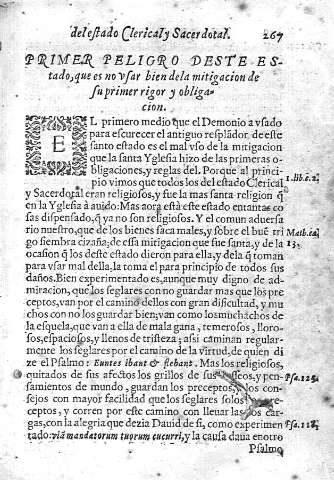 del estado Clerical, y Sacerdotal. 267
PRIMER PELIGRO DESTE ES-
tado, que es no vsar bien dela mitigacion de
su primer rigor y obliga-
cion.
EL primero medio que el Demonio a vsado
para escurecer el antiguo resplãdor de este
santo estado es el mal vso de la mitigacion
que la santa Yglesia hizo de las primeras o
bligaciones, y reglas del. Porque al princi-
pio vimos que todos los del estado Clerical 1. lib. c. 2.
y Sacerdotal eran religiosos, y fue la mas santa religion q̃
en la Yglesia à auido. Mas aora està este estado entantas co
sas dispensado, q̃ ya no son religiosos. Y el comun aduersa
rio nuestro, que de los bienes saca males, y sobre el buẽ tri Math. ca.
go siembra cizaña; de essa mitigacion que fue santa, y de la 13.
ocasiõ q̃ los deste estado dieron para ella, y de la q̃ toman
para vsar mal della, la toma el para principio de todos sus
daños. Bien experimentado es, aunque muy digno de ad-
miracion, que los seglares con no guardar mas que los pre
ceptos, van por el camino dellos con gran dificultad, y mu
chos con no los guardar bien; van como los muchachos de
la esquela, que van a ella de mala gana, temerosos, lloro-
sos, espaciosos, y llenos de tristeza; assi caminan regular-
mente los seglares por el camino de la virtud, de quien di
ze el Psalmo: Euntes ibant & flebant. Mas los religiosos,
quitados de sus afectos los grillos de sus deseos, y pen- Psa. 125.
samientos de mundo, guardan los preceptos, y los con-
sejos con mayor facilidad que los seglares solos los pre-
ceptos, y corren por este camino con lleuar las dos car-
gas, con la alegria que dezia Dauid de si, como experimen Psa. 118.
tado: viâ mandatorum tuorum cucurri, y la causa dà en otro
Psalmo